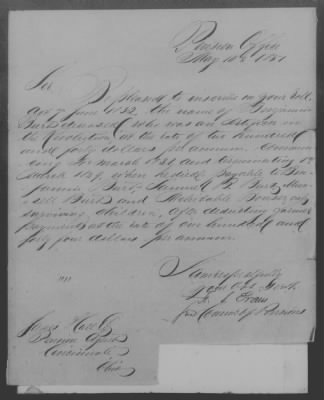 Pension Office
May 10th 1851
Sir
Be pleased to inscribe on your roll,
Act 7 June 1832, the name of Benjamin
deceased who was an in
the Revolution at the rate of two hundred
and forty dollars per annum. Commen-
cing 4th March 1831, and terminating 15
March 1839, when he died, payable to Ben-
jamin Burt, Samuel
Burt and Mehetable only
surviving children, after deducting former
payments at the rate of one hundred and
forty four dollars per annum.
I am respectfully
Your Obt Servt
Evans
for Commr of Pensions
James Hall Esq
Pension Agent
Cincinnati
Ohio